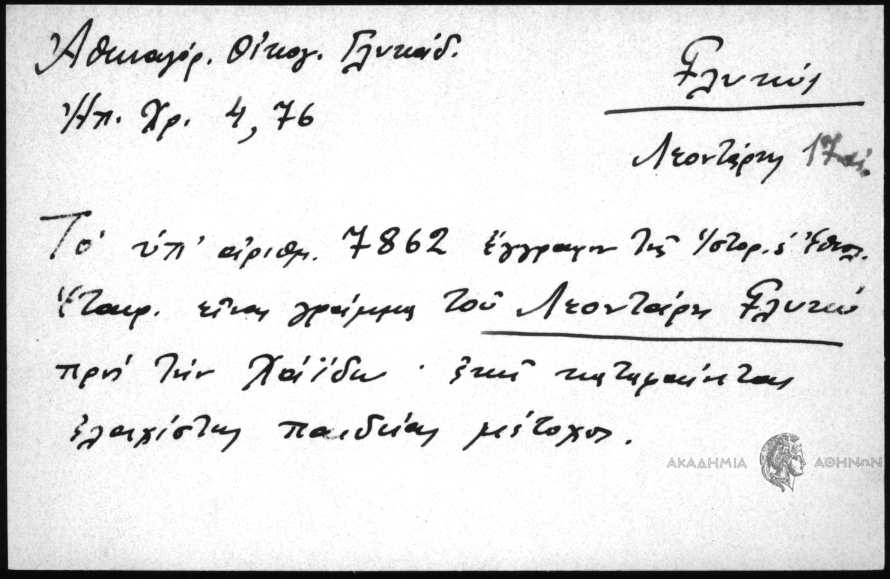 Ἀθηναγόρ. Οἰκογ. Γλυκάδ.
Ἠπ. Χρ. 4, 76
Γλυκύς
Λεοντάρης 17 αἰ.
Τὸ ὑπ' ἀριθμ. 7862 ἔγγραφον τῆς Ἱστορ. & Ἐθνολ.
Ἑταιρ. εἶναι γράμμα τοῦ Λεοντάρη Γλυκύ
πρὸς τὴν Χάϊδω · ἐκεῖ καταφαίνεται
ἐλαχίστης παιδείας μέτοχος.
ΑΚΑΔΗΜΙΑ ΑΘΗΝΩΝ